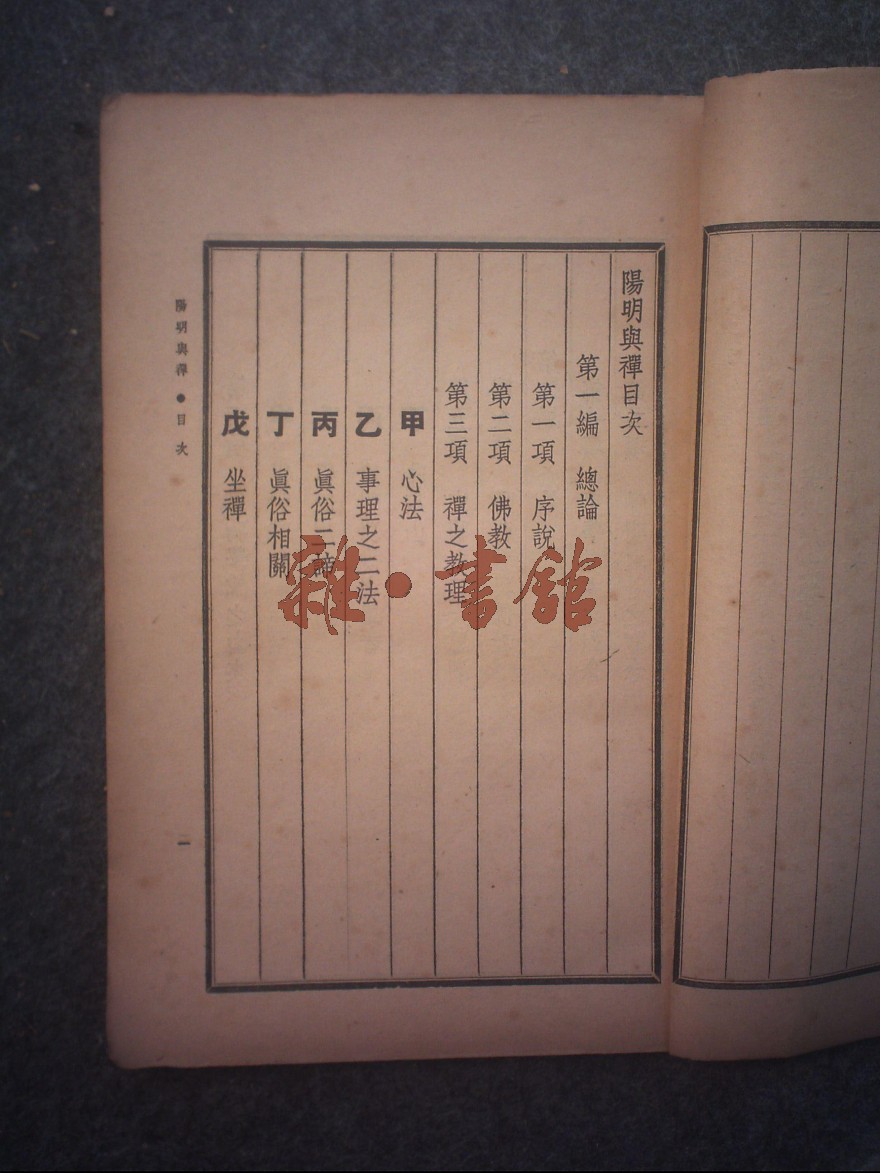 陽明與禪目次
第一編　總論
第一項　序說
第二項　佛教
第三項　禪之教理
甲　心法
乙　事理之二法
丙　眞俗二諦
丁　眞俗相關
戊　坐禪
陽明與禪●目次
一
雜·書館